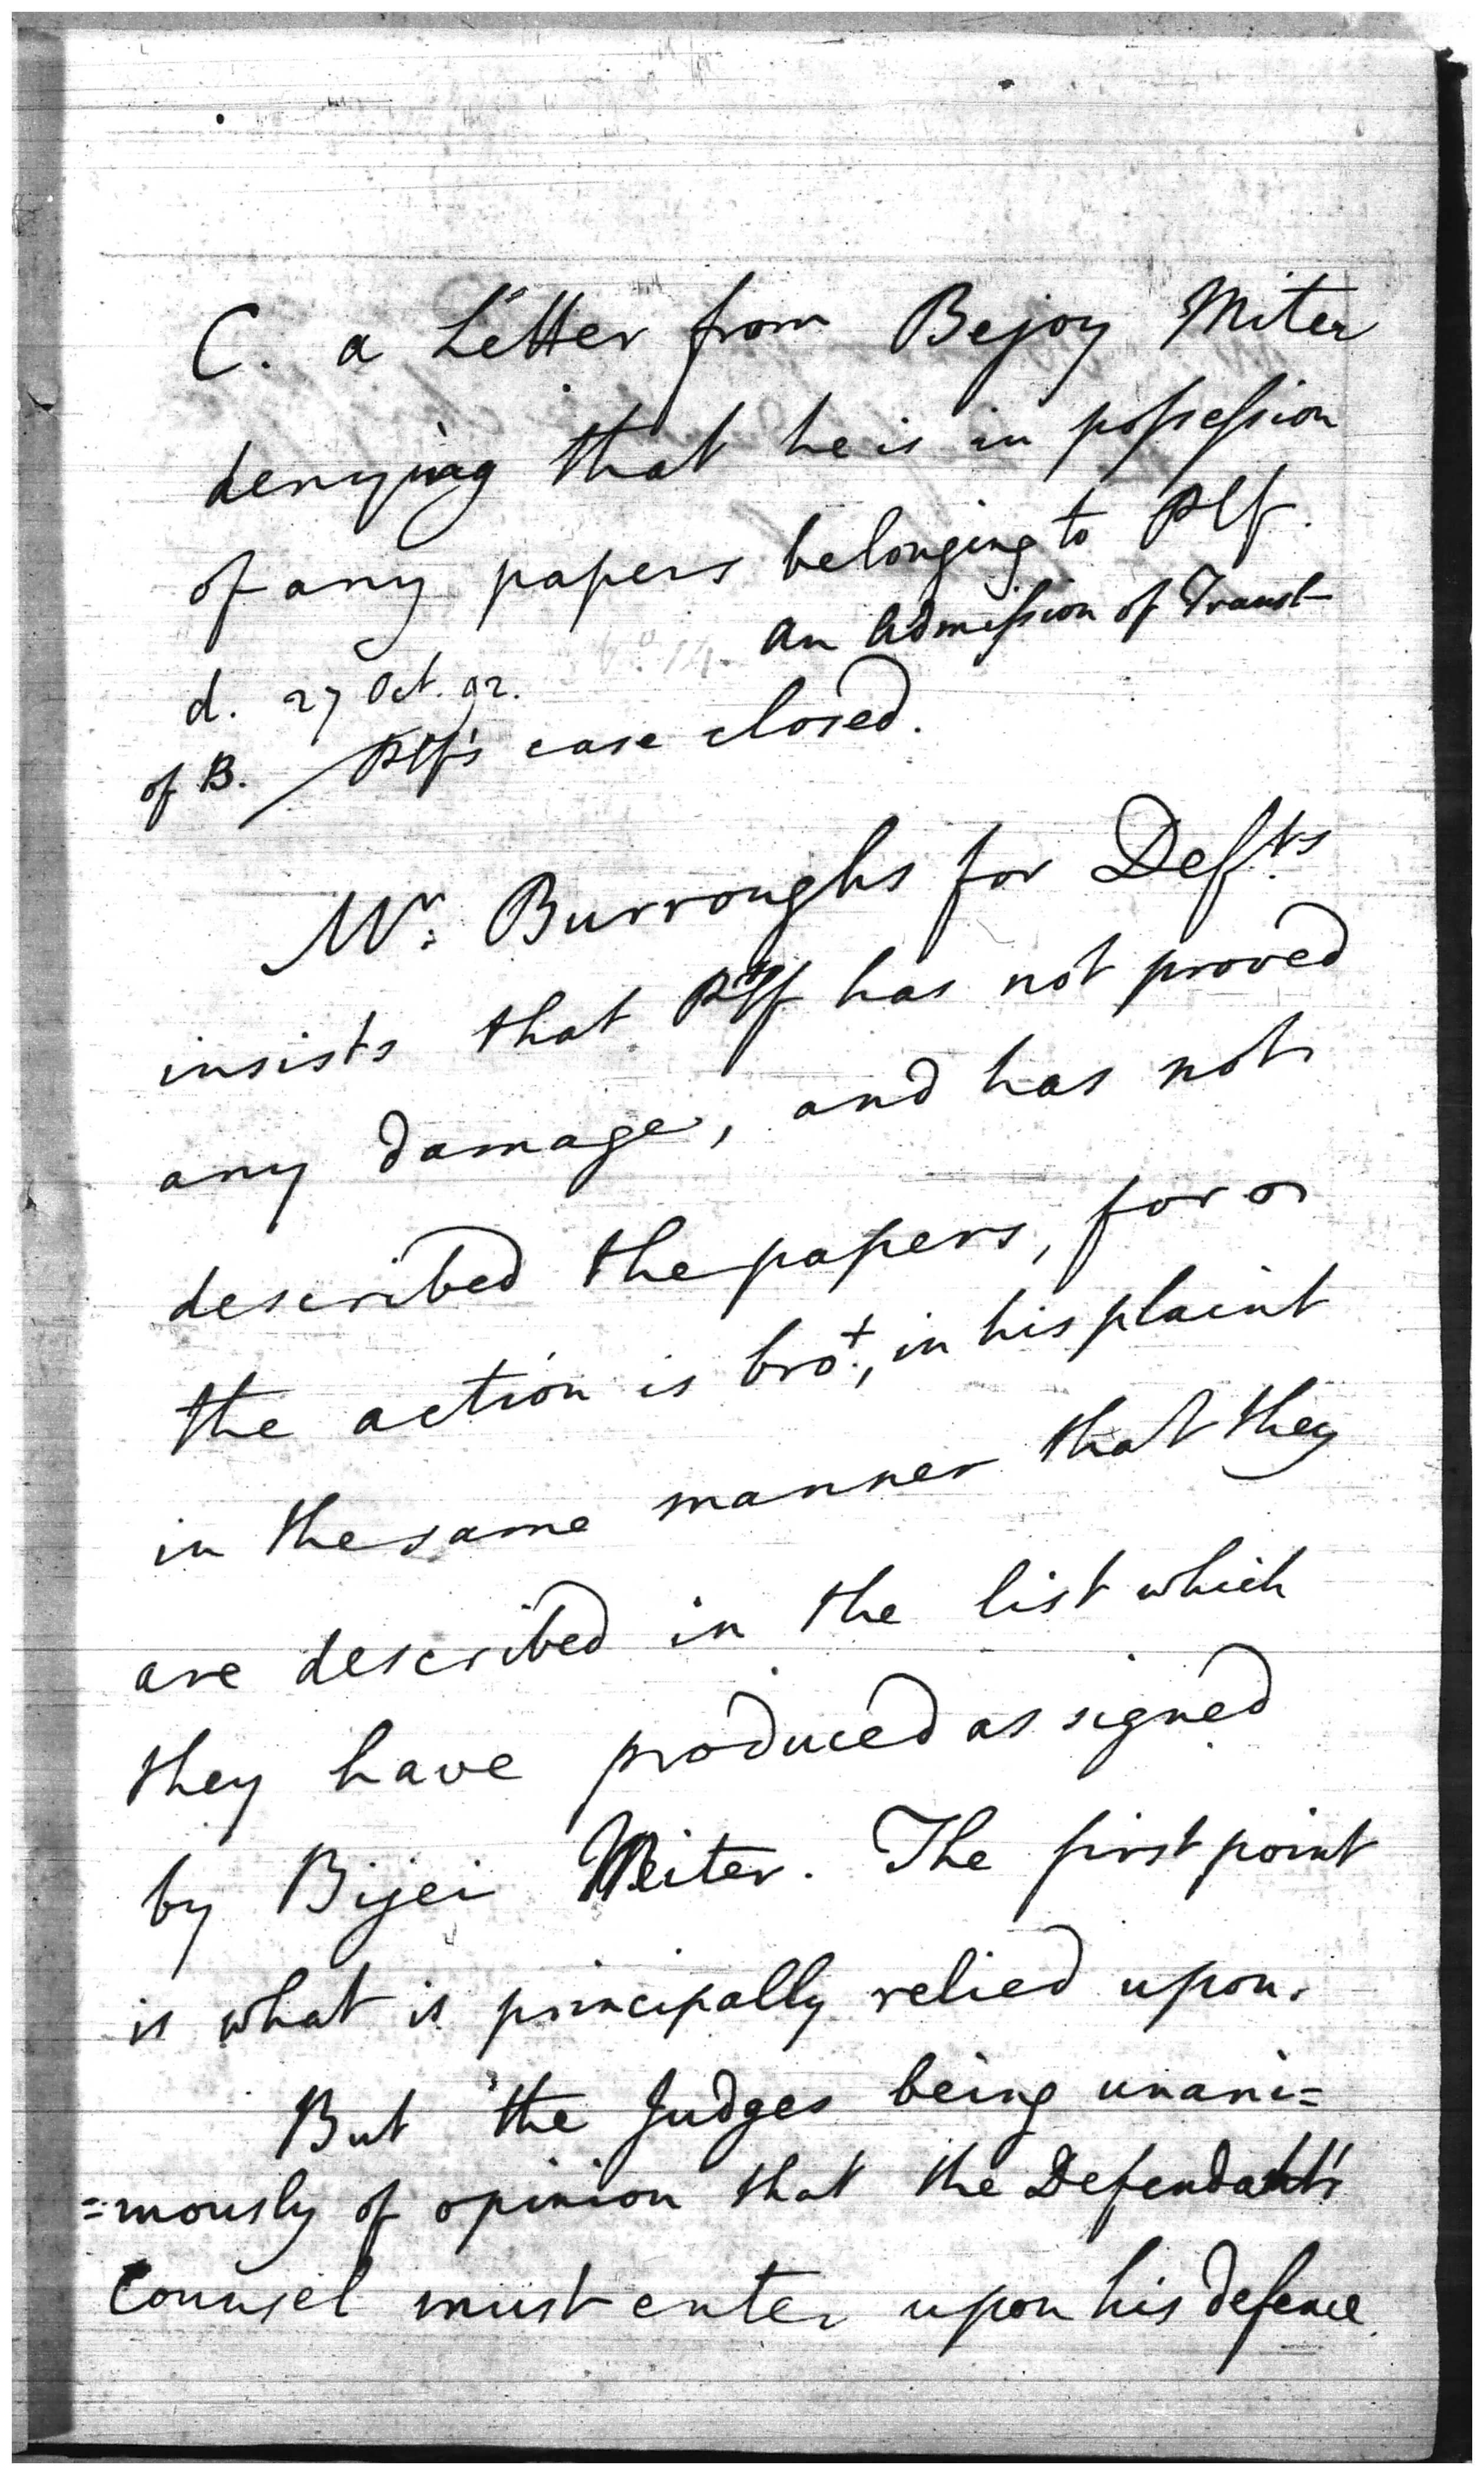 C. a Letter from Bejoy Miter
denying that he is in possession
of any papers belonging to Plf.
d. 27 Oct. 92. an Admission of Transl
of B. / Plf's case closed.
Mr. Burroughs for Defts
insists that Plff has not proved
any damage, and has not
described the papers, for
the action is brot., in his plaint
in the same manner that they
are described in the list which
they have produced as signed
by Bijei Miter. The first point
is what is principally relied upon.
But the Judges being unani=
=mously of opinion that the Defendants
Counsel must enter upon his defence.